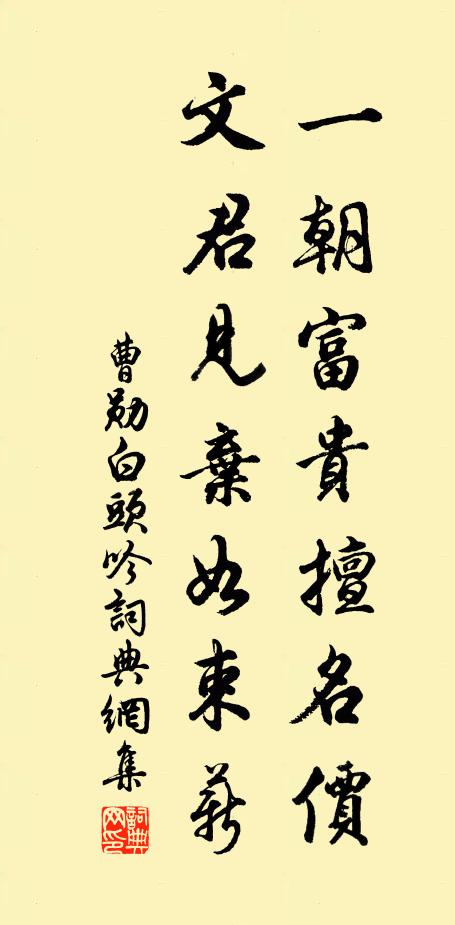 一朝富貴擅名價
文君見棄如束薪
曹勛白頭吟詞典網集
詞典网印